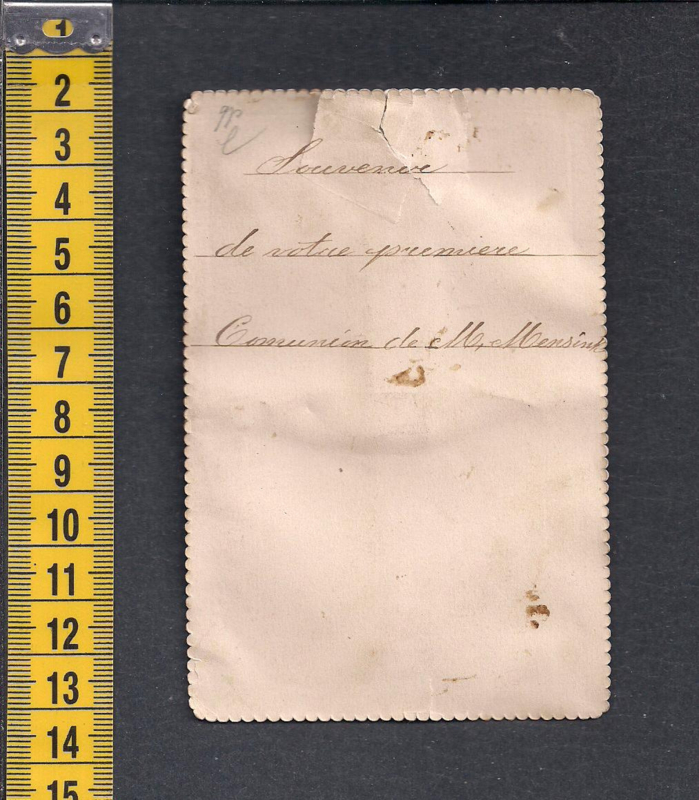 1
2
3
4
5
6
7
8
9
10
11
12
13
14
15
Souvenir
de votre premiere
Comunión de M. Mensink